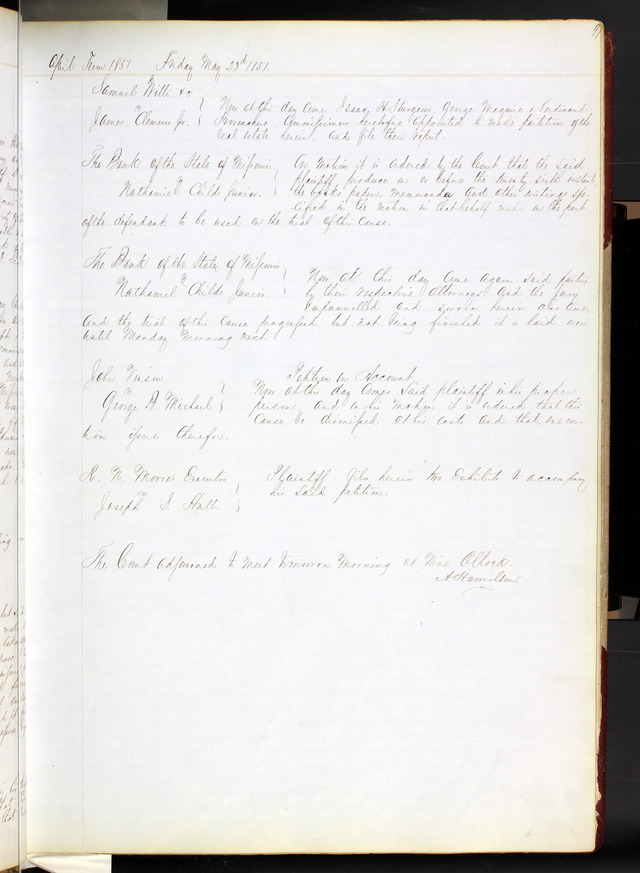 April Term 1851. Friday May 23d 1851.
Samuel Willi &c
vs
James Clemens Jr.
Now at this day come Isaac H. Sturgeon, George Maguire & Ferdinand
Commissioners heretofore appointed to make partition of the
real estate herein and file their report.
The Bank of the State of Missouri
vs
Nathaniel Childs Junior.
On motion it is ordered by the Court that the said
plaintiff produce on or before the twenty sixth instant,
the books papers, memoranda and other writings spe-
cified in the motion in that behalf made on the part
of the defendant, to be used on the trial of this cause.
The Bank of the State of Missouri
vs
Nathaniel Childs Junior.
Now at this day come again said parties
by their respective attorneys and the jury
empannelled and sworn herein also come,
and the trial of this cause progressed but not being finished it is laid over
until Monday morning next.
John Vinson
vs
George D. Michael
Petition on Account.
Now at this day comes said plaintiff in his proper
person and on his motion it is ordered that this
cause be dismissed at his costs and that execu-
tion issue therefor.
R. N. Moores Executor
vs
Joseph S. Hull.
Plaintiff files herein two Exhibits to accompany
his said petition.
The Court adjourned to meet tomorrow morning at Nine O'Clock.
A Hamilton